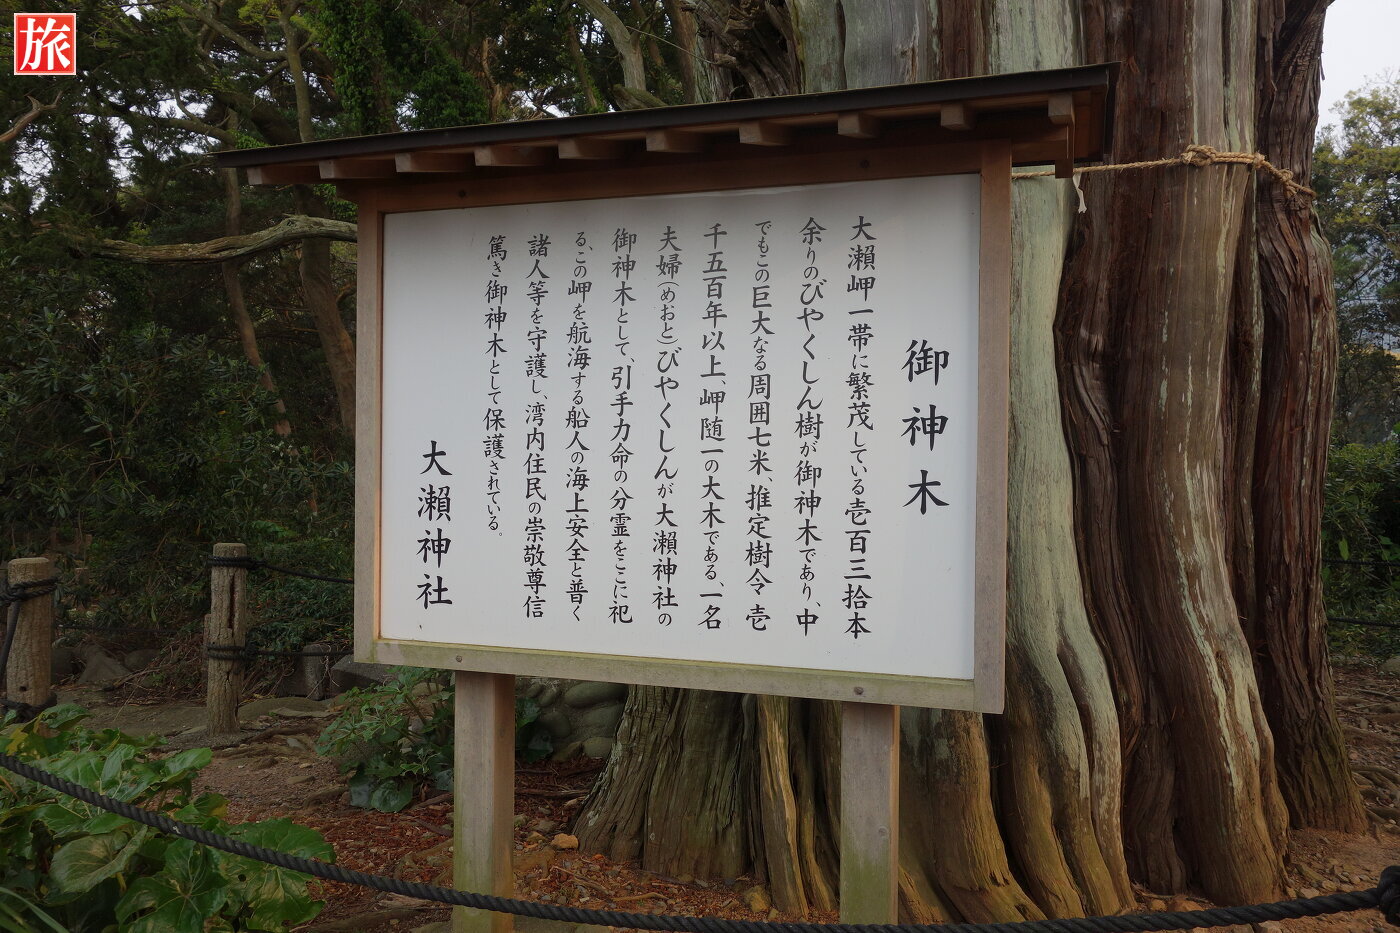 旅
御神木
大瀬岬一帯に繁茂している壱百三拾本
余りのびやくしん樹が御神木であり、中
でもこの巨大なる周囲七米、推定樹令壱
千五百年以上、岬随一の大木である、一名
夫婦(めおと)びやくしんが大瀬神社の
御神木として、引手力命の分霊をここに祀
る、この岬を航海する船人の海上安全と普く
諸人等を守護し、湾内住民の崇敬尊信
篤き御神木として保護されている。
大瀬神社